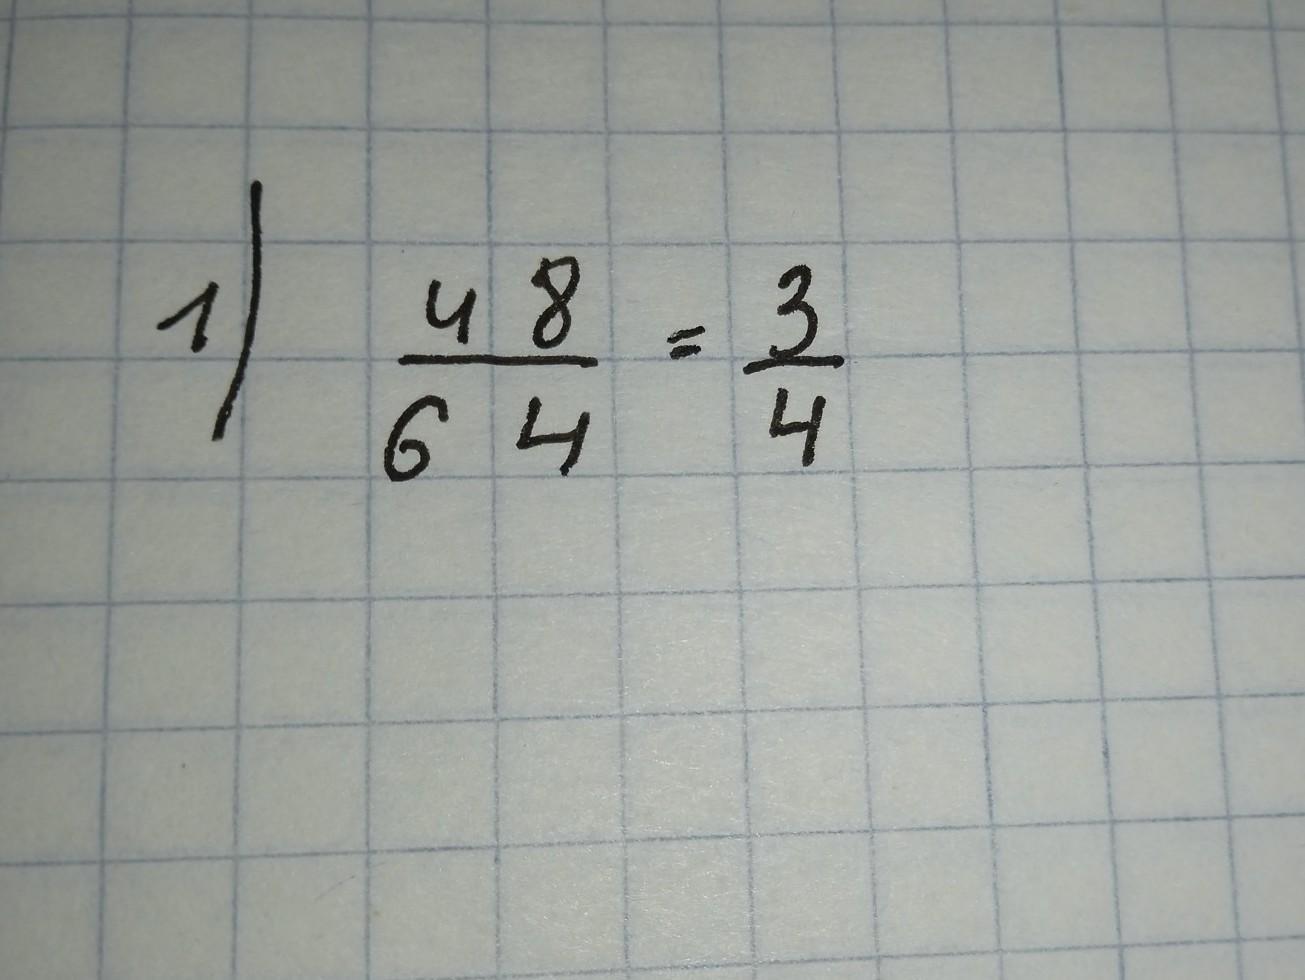 1) 48/64 = 3/4